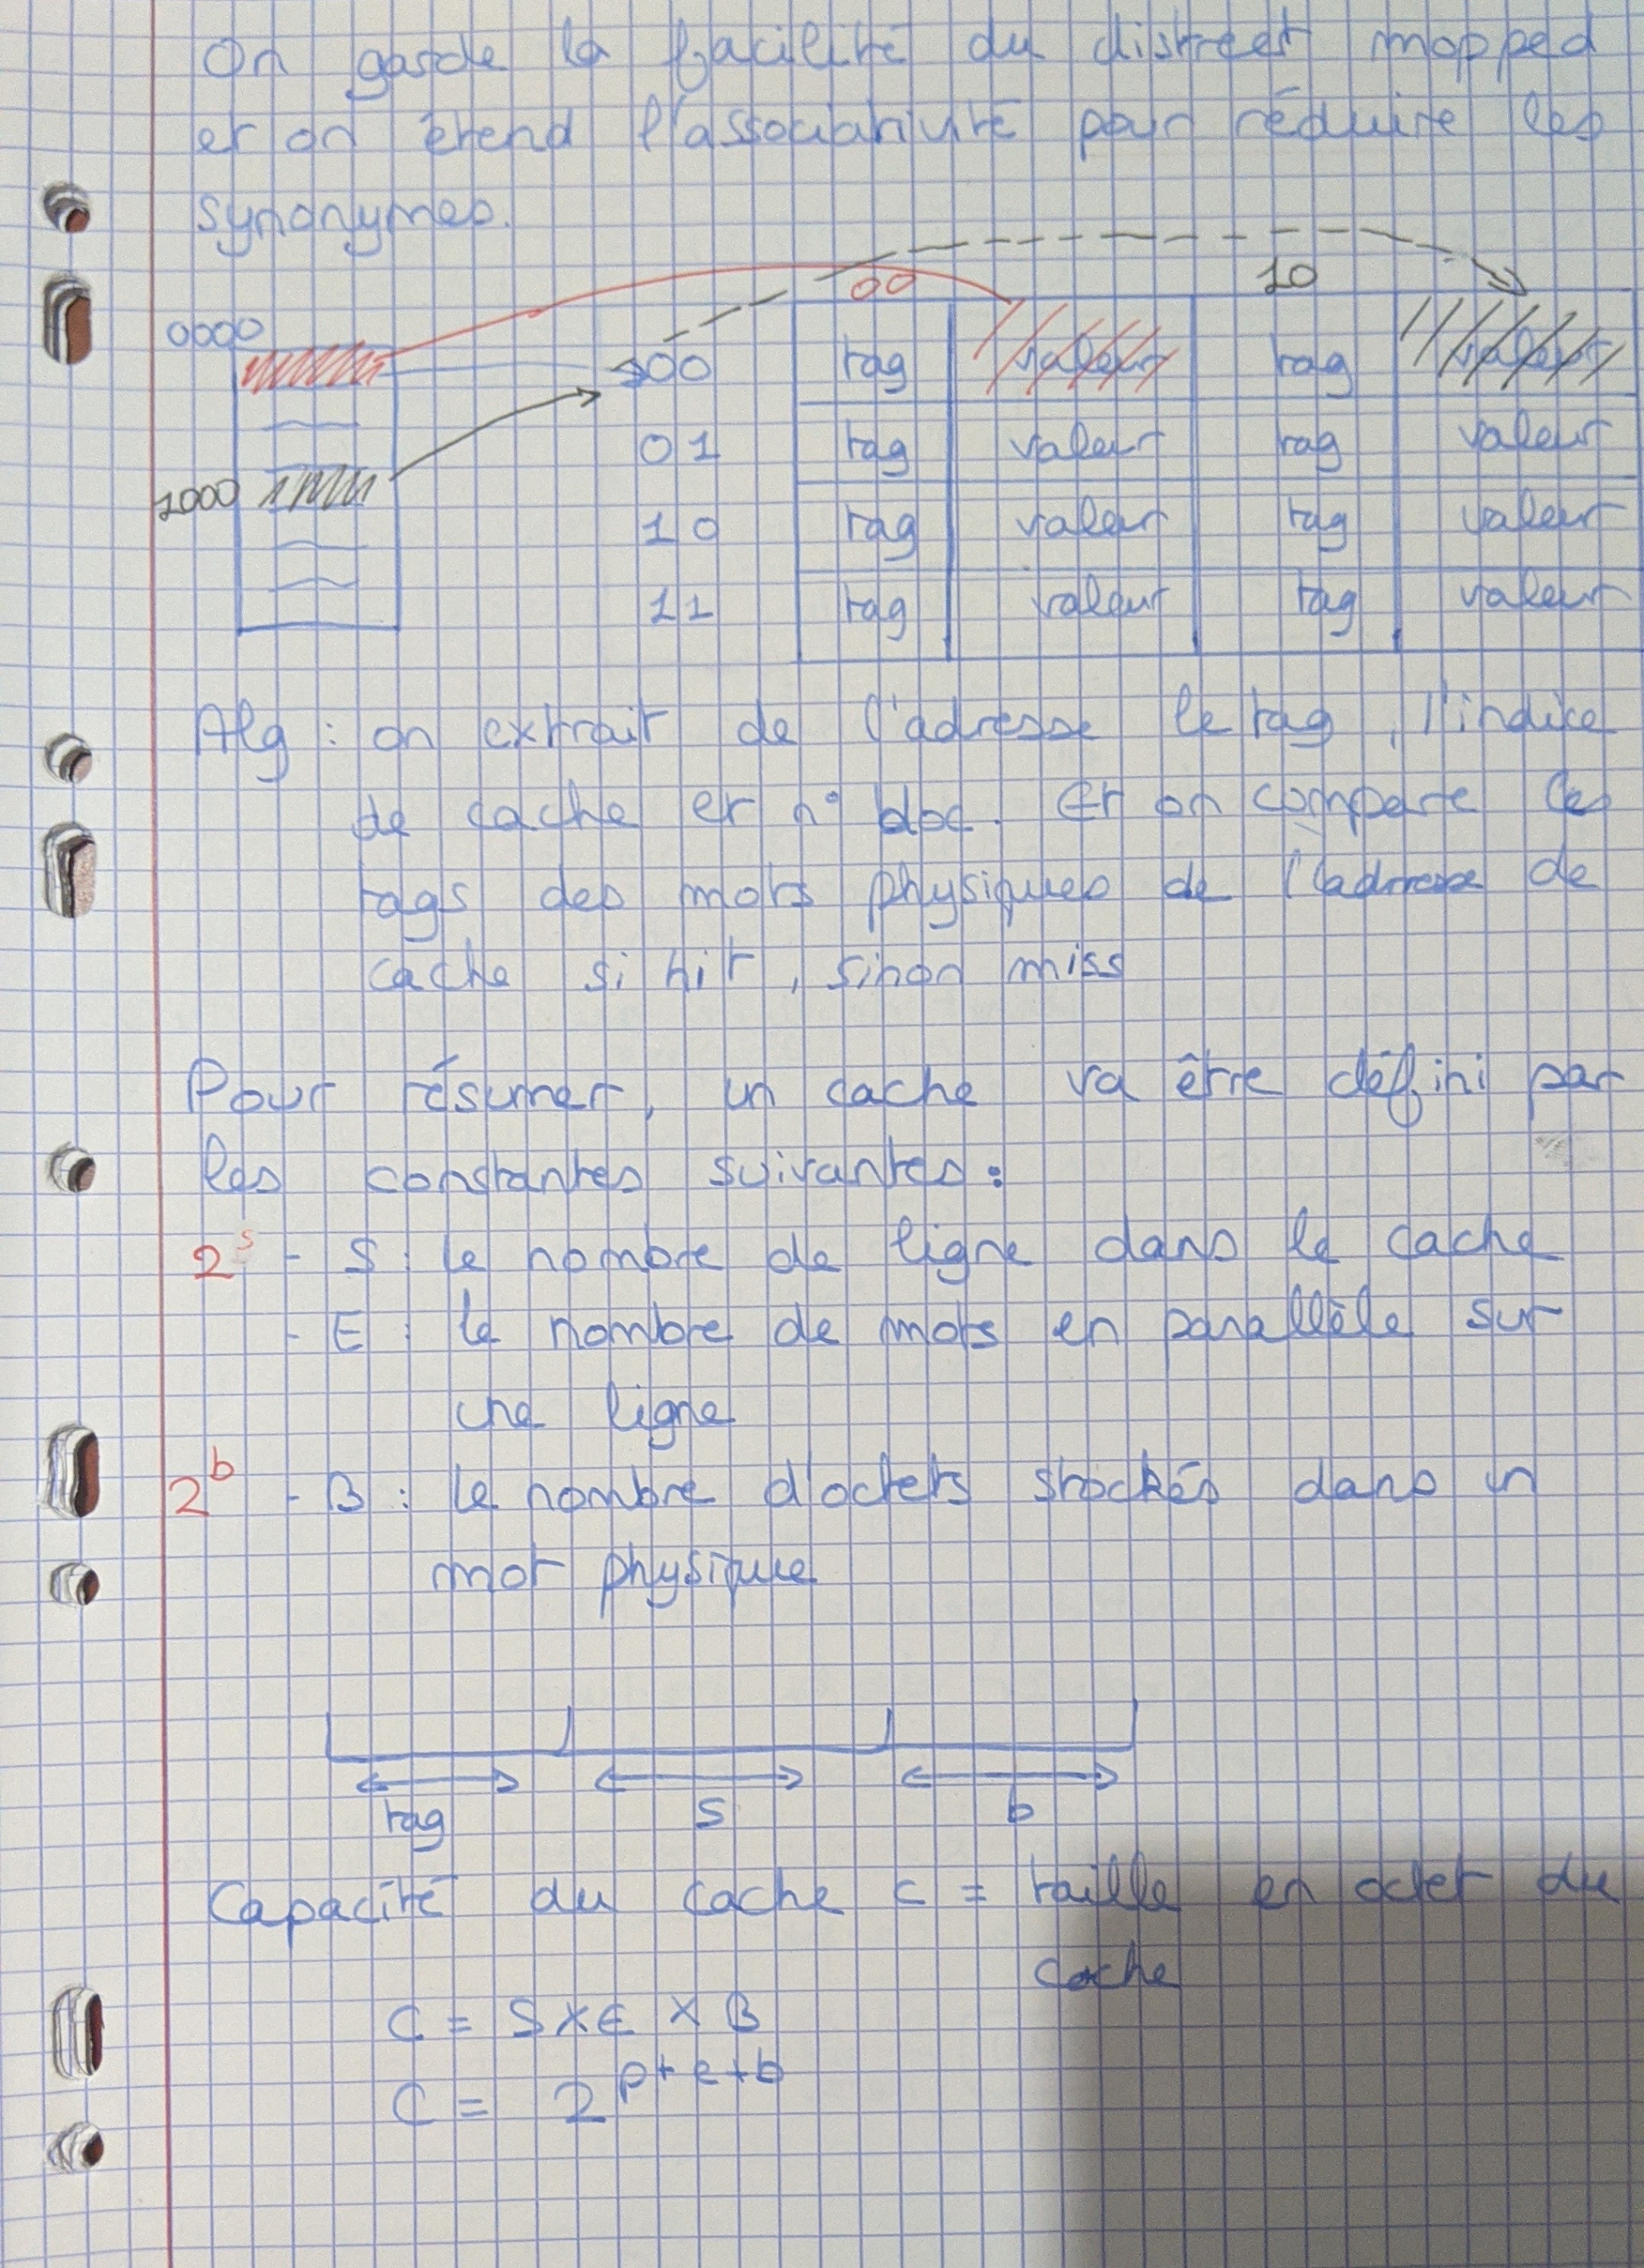 On garde la facilité du distrect mapped
et on étend l'associativité pour réduire les
synonymes.
00 10
0000 00 tag valeur tag valeur
01 tag valeur tag valeur
1000 10 tag valeur tag valeur
11 tag valeur tag valeur
Alg : on extrait de l'adresse le tag, l'indice
de cache et n° bloc. Et on compare les
tags des mots physiques de l'adresse de
cache si hit, sinon miss
Pour résumer, un cache va être défini par
les constantes suivantes :
2^s - S : le nombre de ligne dans le cache
- E : le nombre de mots en parallèle sur
une ligne
2^b - B : le nombre d'octets stockés dans un
mot physique
tag s b
Capacité du cache C = taille en octet du
cache
C = S x E x B
C = 2^p+e+b